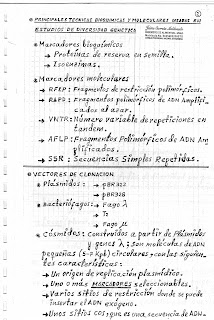 ①
* PRINCIPALES TECNICAS BIOQUIMICAS Y MOLECULARES USADAS EN
ESTUDIOS DE DIVERSIDAD GENETICA
* Marcadores bioquímicos
→ Proteínas de reserva en semilla.
→ Isoenzimas.
* Marcadores moleculares
→ RFLP: Fragmentos de restricción polimórficos.
→ RAPD: Fragmentos polimórficos de ADN Amplifi-
cados al azar.
→ VNTR: Número variable de repeticiones en
tandem.
→ AFLP: Fragmentos Polimórficos de ADN Am
plificados.
→ SSR: Secuencias Simples Repetidas.
* VECTORES DE CLONACION
* Plásmidos: → pBR322
→ pBR328
* Bacteriófagos: → Fago λ
→ T2
→ Fago μ
* Cósmidos: Construídos a partir de Plásmidos
y genes λ; Son moléculas de ADN
pequeñas (5-7 kpb) circulares, con las siguien
tes características:
→ Un origen de replicación plasmídico.
→ Uno o más MARCADORES seleccionables.
→ Varios sitios de restricción donde se puede
insertar el ADN exógeno.
→ Unos sitios COS, que es una secuencia de ADN